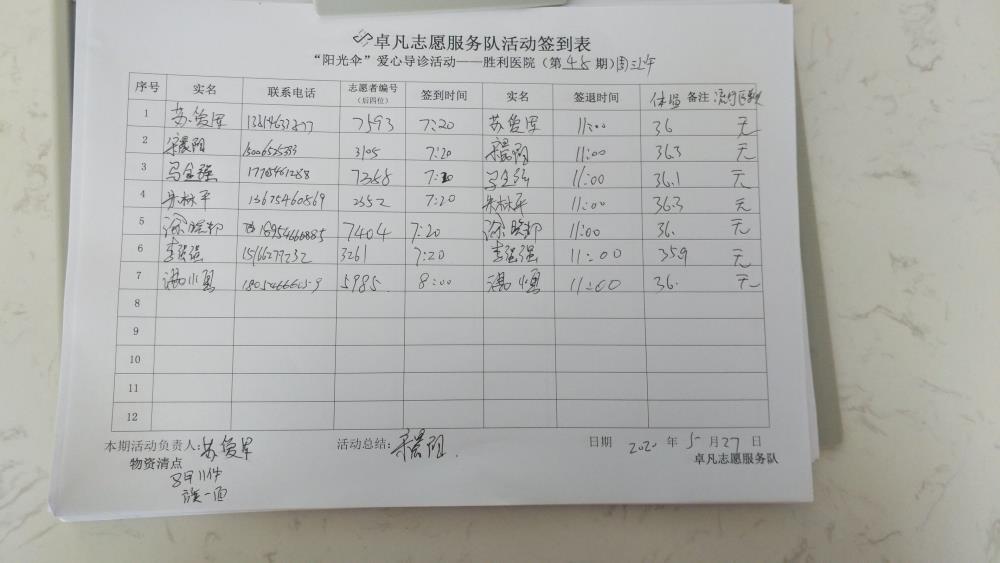 卓凡志愿服务队活动签到表
“阳光伞”爱心导诊活动——胜利医院（第 48 期）周三上午
序号 实名 联系电话 志愿者编号（后四位） 签到时间 实名 签退时间 体温 备注
1 苏俊军 7593 7:20 苏俊军 11:00 36 无
2 宋晨阳 15006525333 3105 7:20 宋晨阳 11:00 36.3 无
3 马金强 7:20 马金强 11:00 36.1 无
4 朱林平 13675460869 2552 7:20 朱林平 11:00 36.3 无
5 18954660885 7404 7:20 11:00 36. 无
6 李强强 15166277232 3261 7:20 李强强 11:00 359 无
7 5985. 8:00 11:00 36. 无
8
9
10
11
12
本期活动负责人: 苏俊军 活动总结: 宋晨阳. 日期 2020 年 5 月 27 日
物资清点 卓凡志愿服务队
11件
旗一面